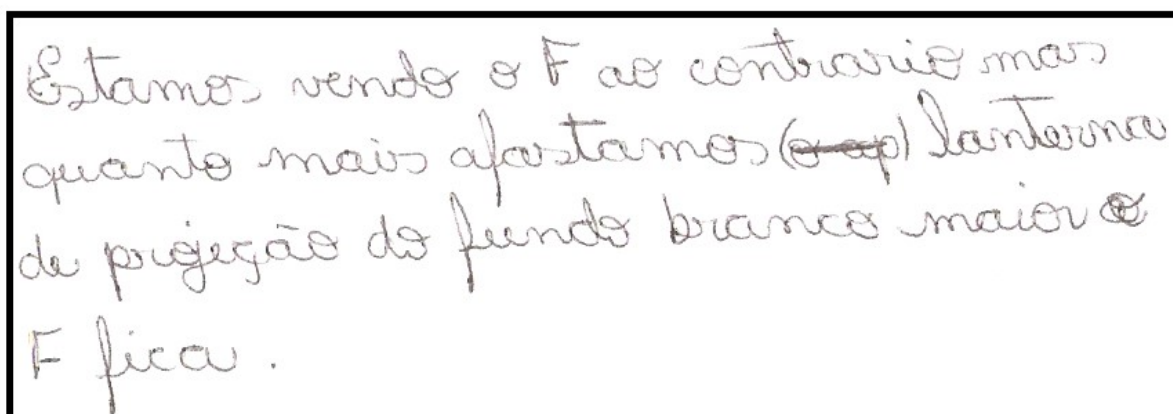 Estamos vendo o F ao contrario mas
quanto mais afastamos (o ap) lanterna
de projeção do fundo branco maior o
F fica.